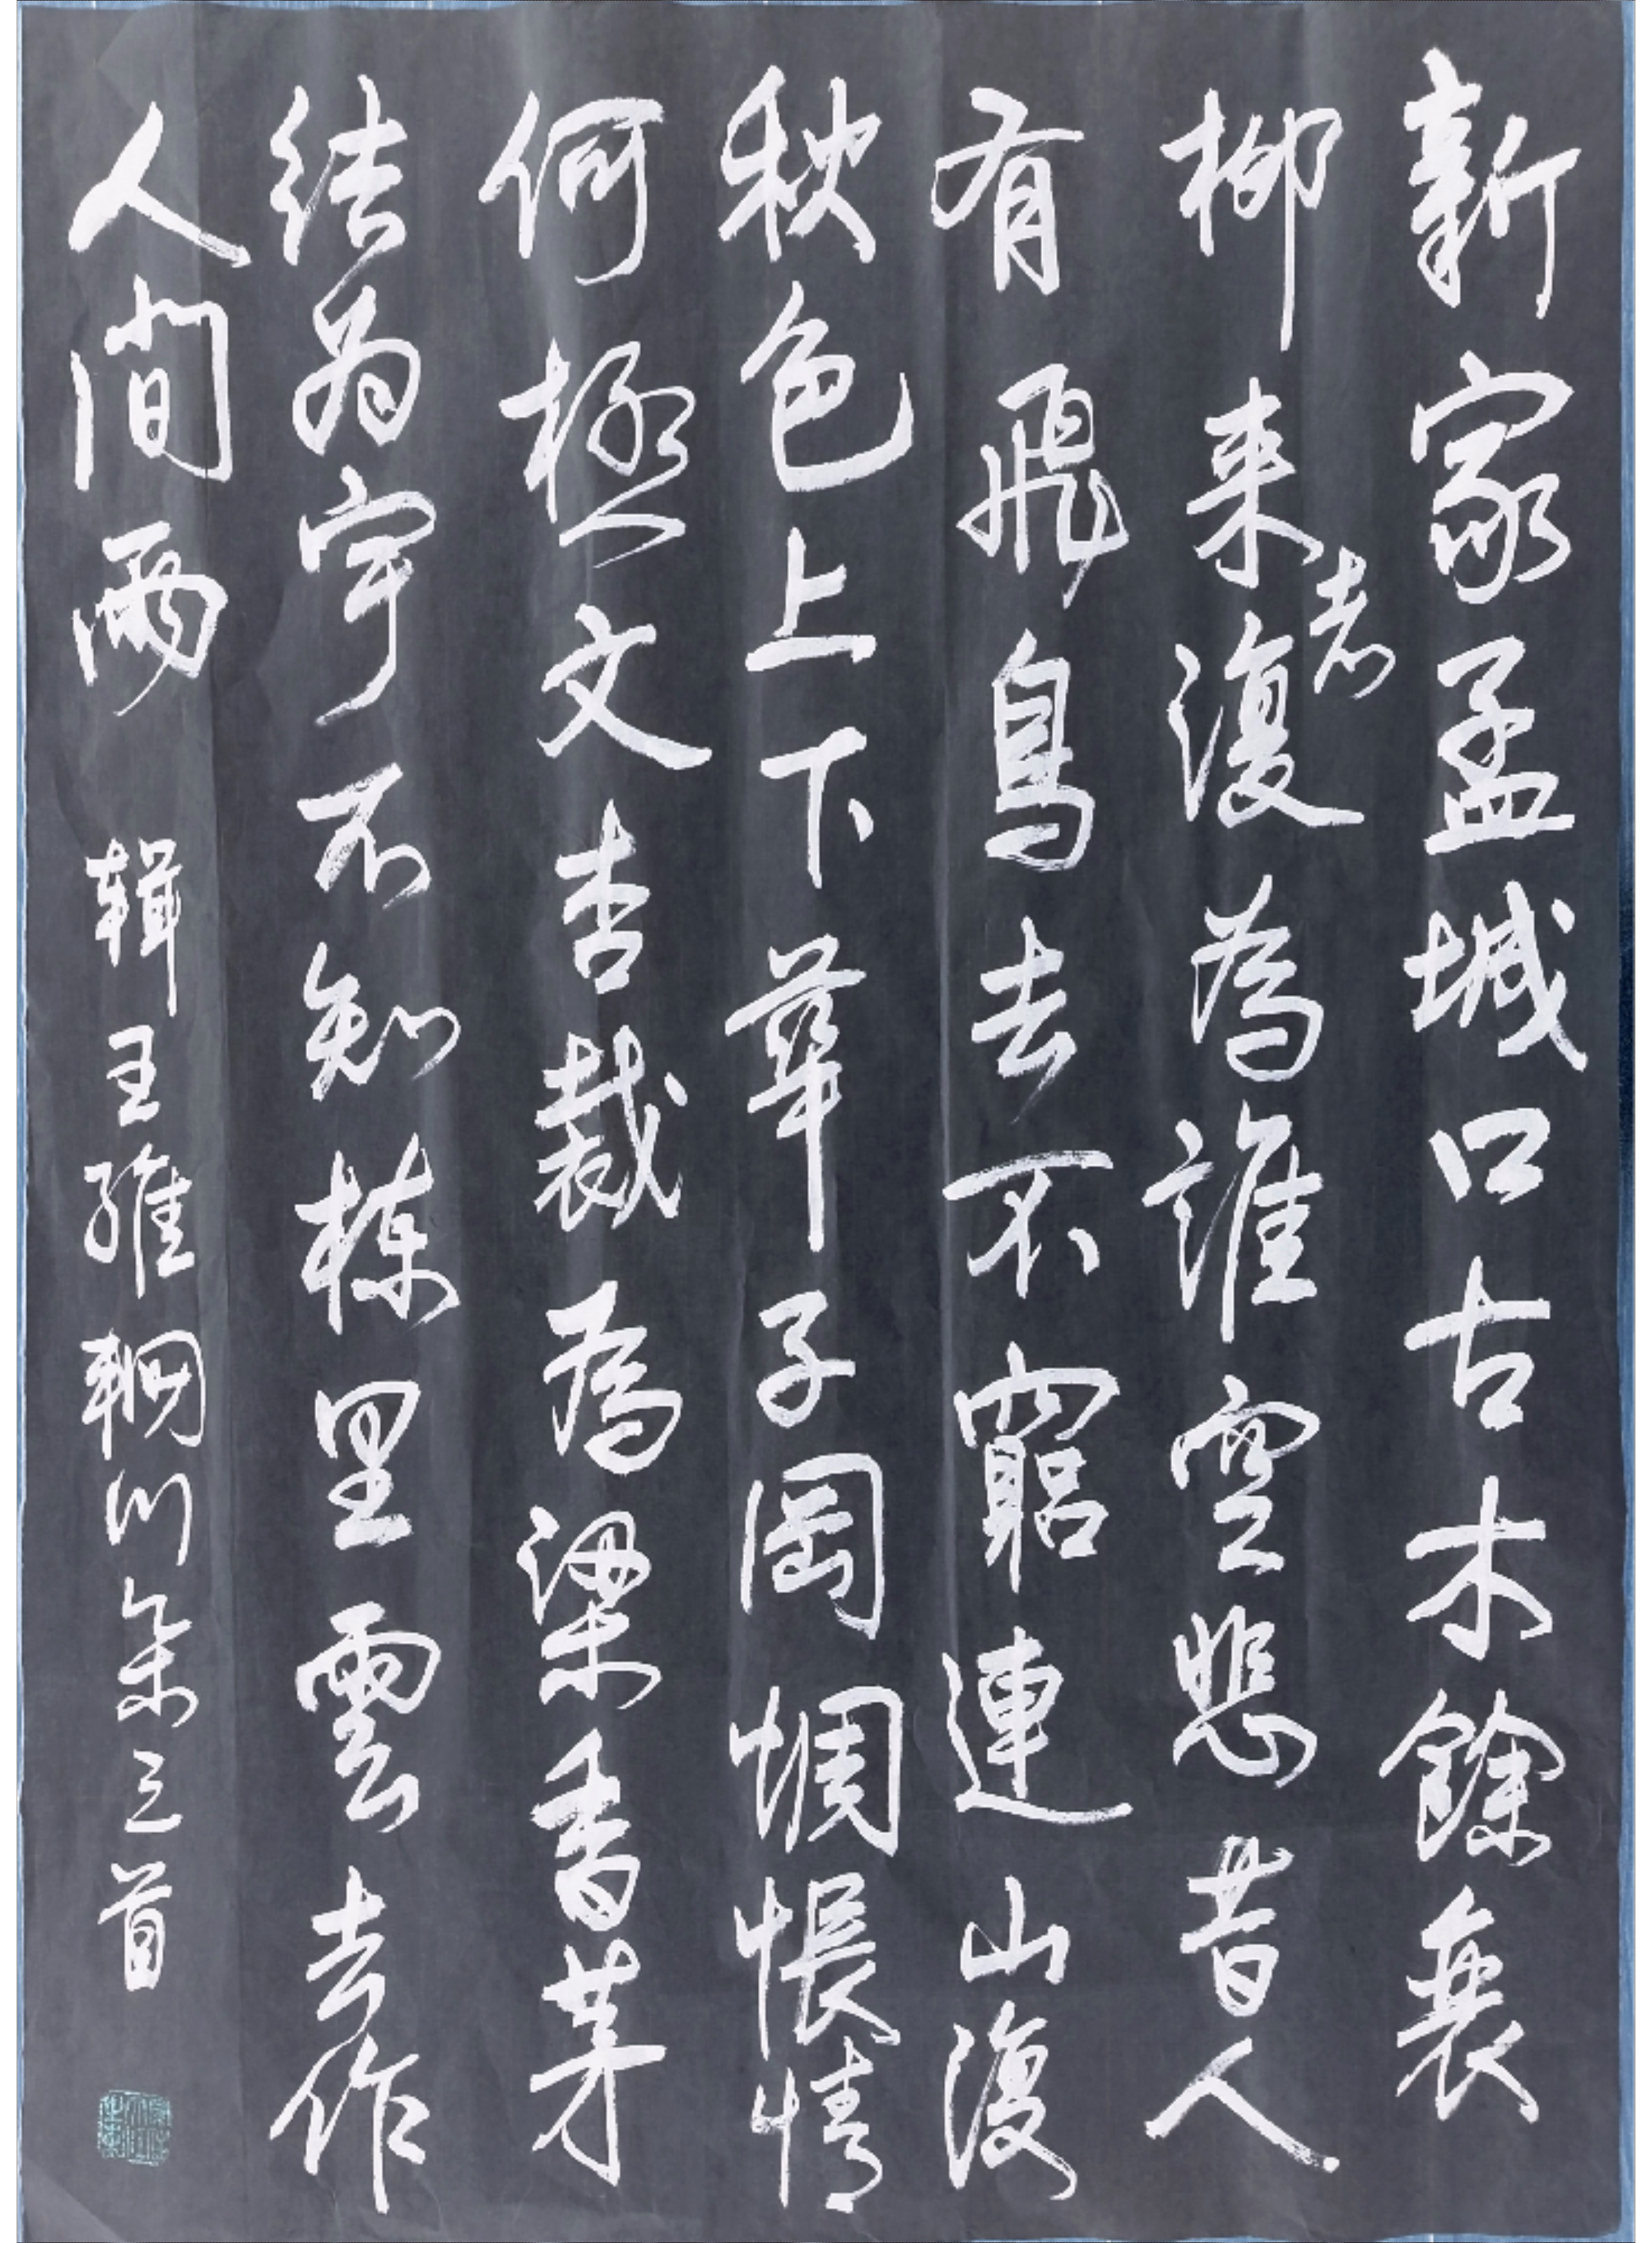 新家孟城口古木餘衰
柳来者復為誰空悲昔人
有飛鳥去不窮連山復
秋色上下華子岡惆悵情
何極文杏裁為梁香茅
结為宇不知棟里雲去作
人間雨 輯王維輞川集三首